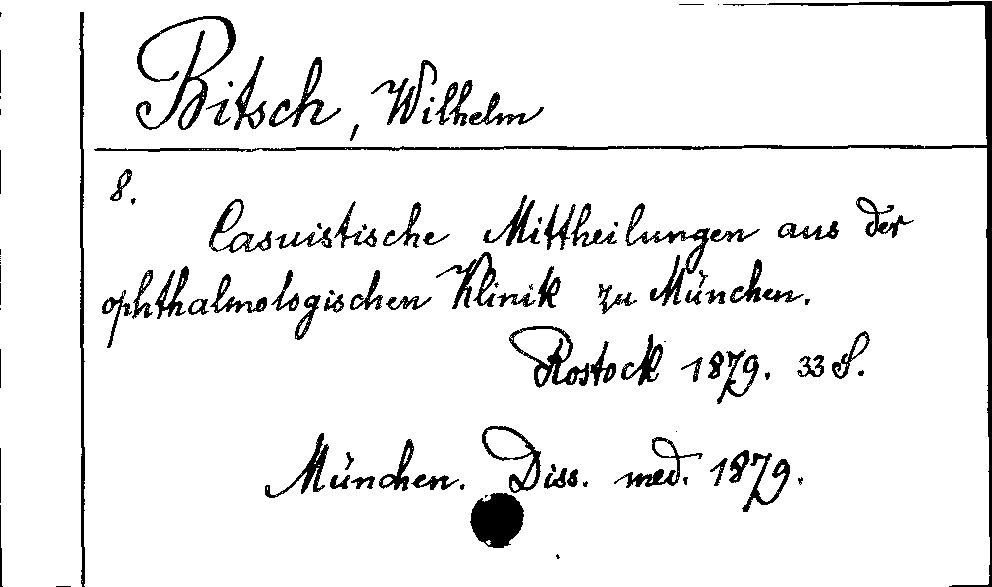 Bitsch, Wilhelm
8.
Casuistische Mittheilungen aus der
ophthalmologischen Klinik zu München.
Rostock 1879. 33 S.
München. Diss. med. 1879.